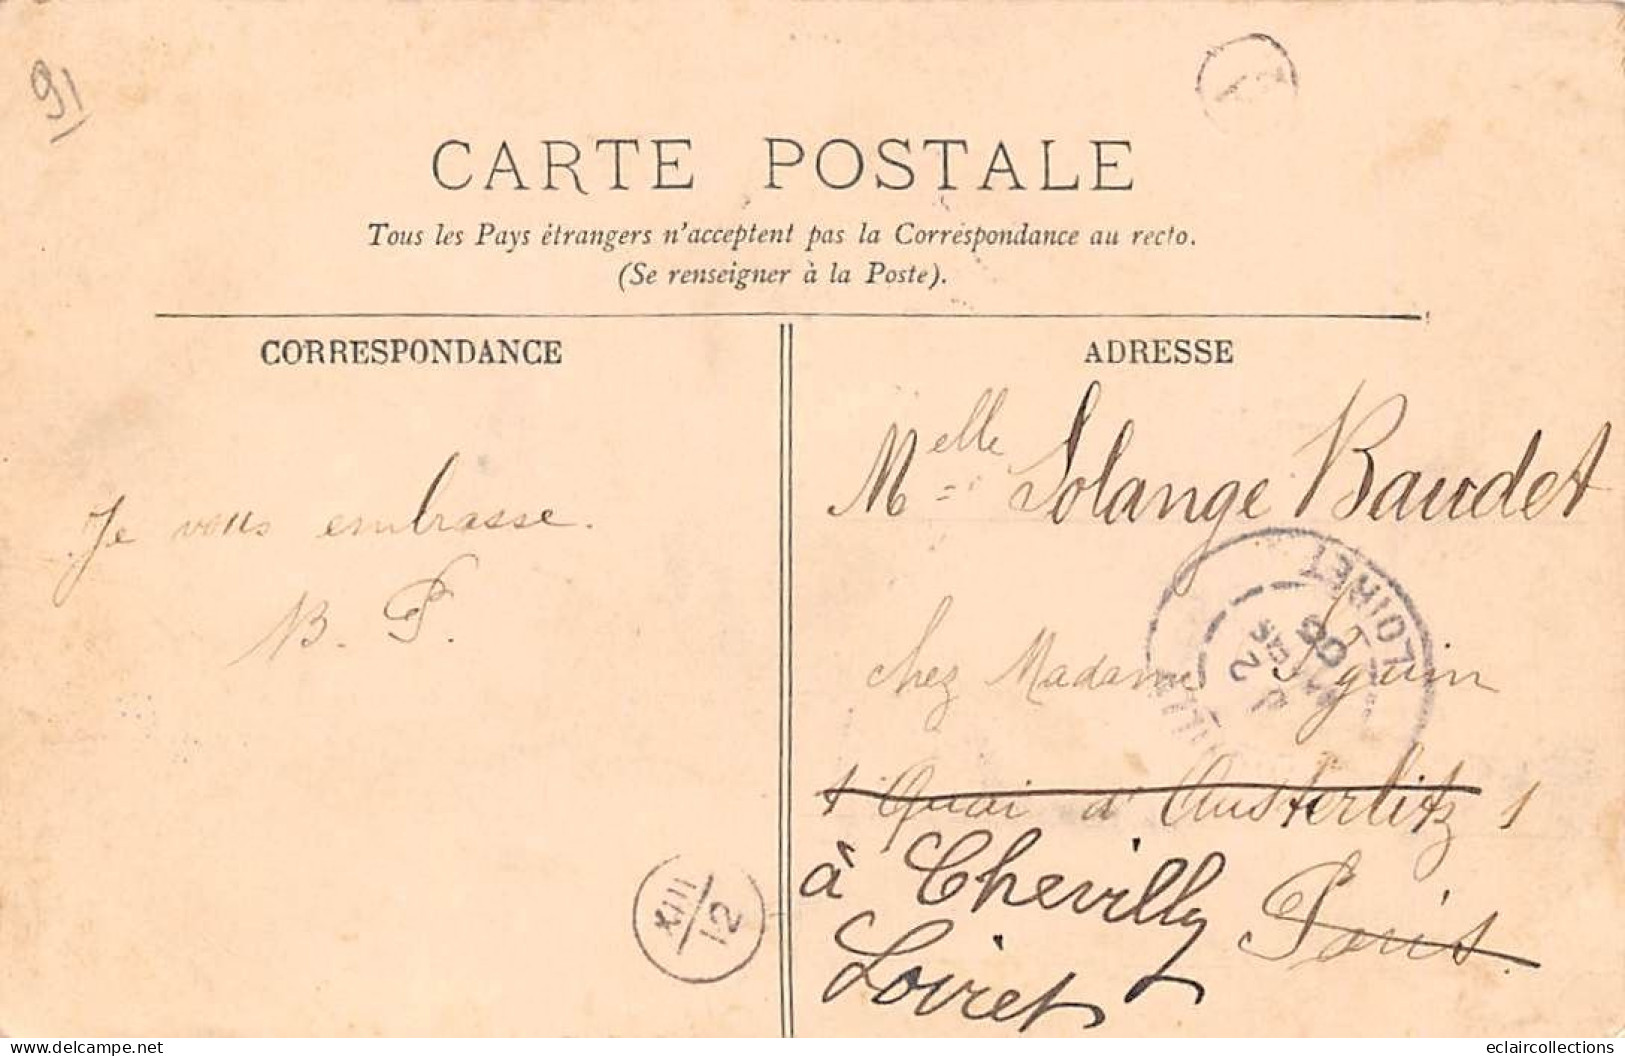 91
CARTE POSTALE
Tous les Pays étrangers n'acceptent pas la Correspondance au recto.
(Se renseigner à la Poste).
CORRESPONDANCE
Je vous embrasse.
B. P.
XIII
12
ADRESSE
Melle Solange Baudet
chez Madame
1 Quai d'Austerlitz 1
Paris
à Chevilly
Loiret
LOIRET
eclaircollections